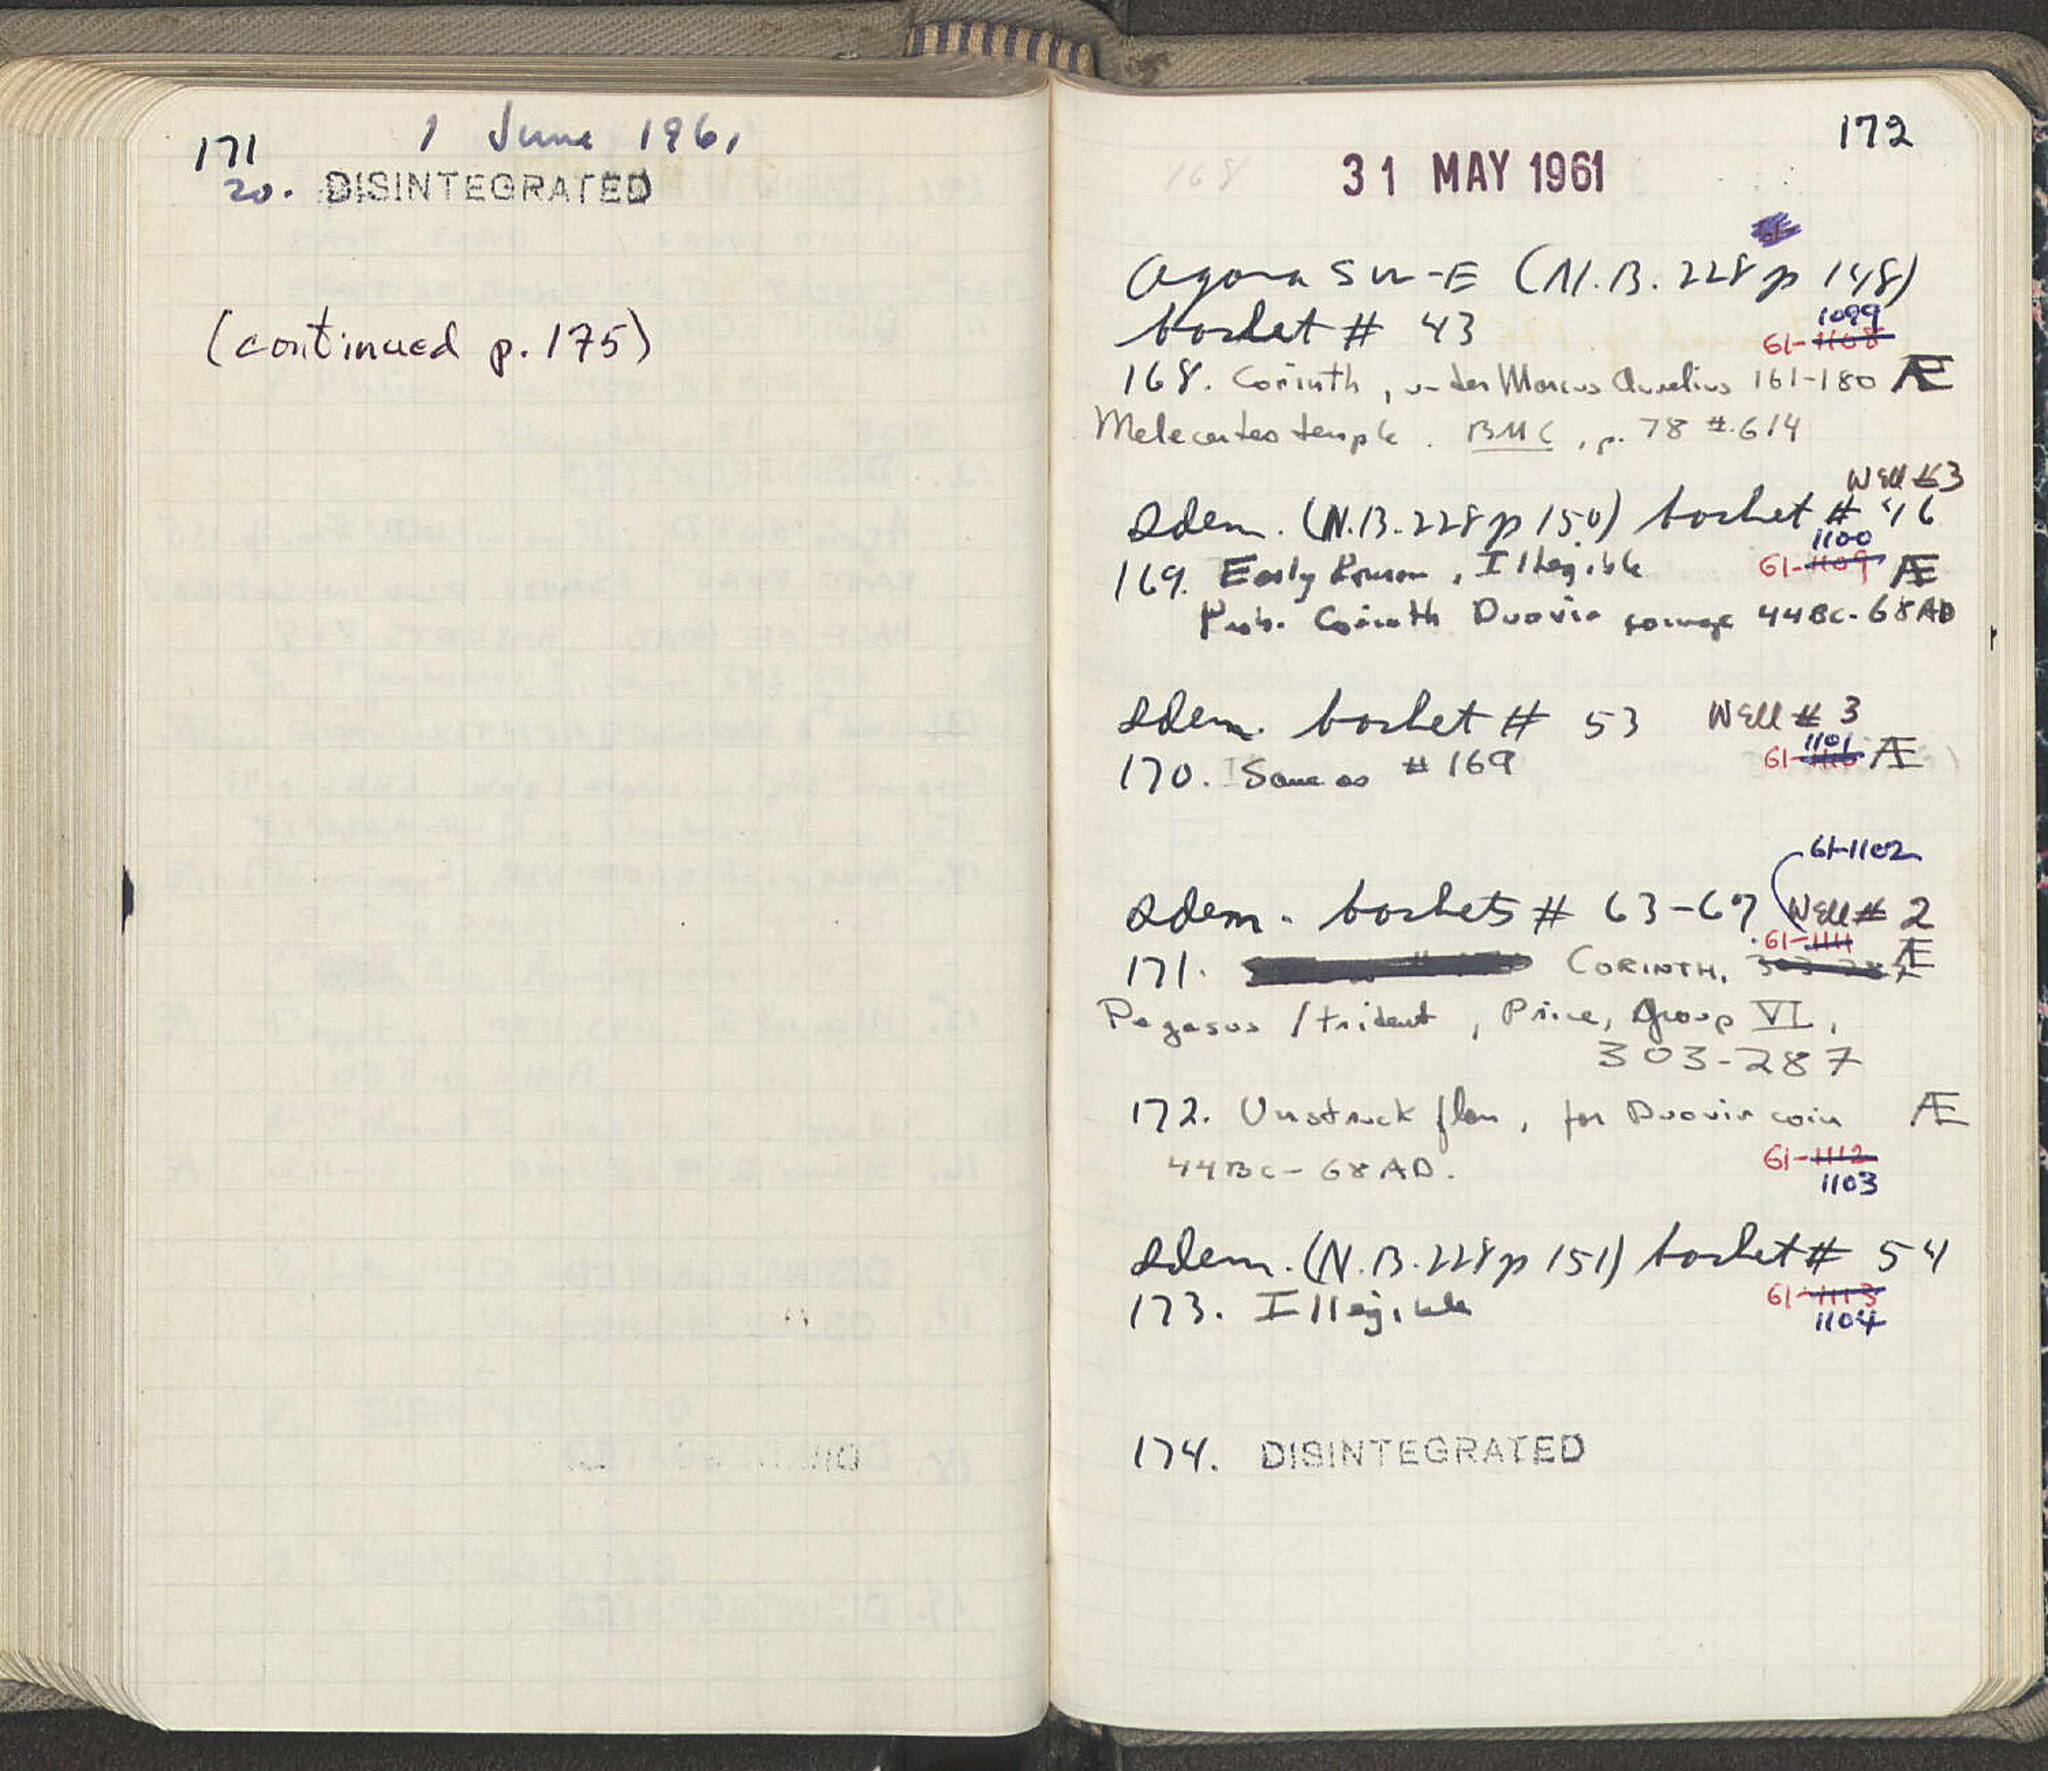 171
1 June 1961
20. DISINTEGRATED
(continued p. 175)
172
168
31 MAY 1961
Agora SW-E (N.B. 228 p 148)
basket # 43
1099
61-1108
168. Corinth, under Marcus Aurelius 161-180 Æ
Melecertes temple. BMC, p. 78 #614
Well #3
Idem. (N.B. 228 p 150) basket # 46
1100
169. Early Roman, Illegible 61-1109 Æ
Prob. Corinth Duovir coinage 44BC-68AD
Idem. basket # 53 Well # 3
1101
170. Same as # 169 61-1110 Æ
61-1102
Idem. baskets # 63-67 Well # 2
61-1111 Æ
171. CORINTH, 303-287
Pegasus / trident, Price, Group VI,
303-287
172. Unstruck flan, for Duovir coin Æ
44BC-68AD. 61-1112
1103
Idem. (N.B. 228 p 151) basket # 54
173. Illegible 61-1113
1104
174. DISINTEGRATED